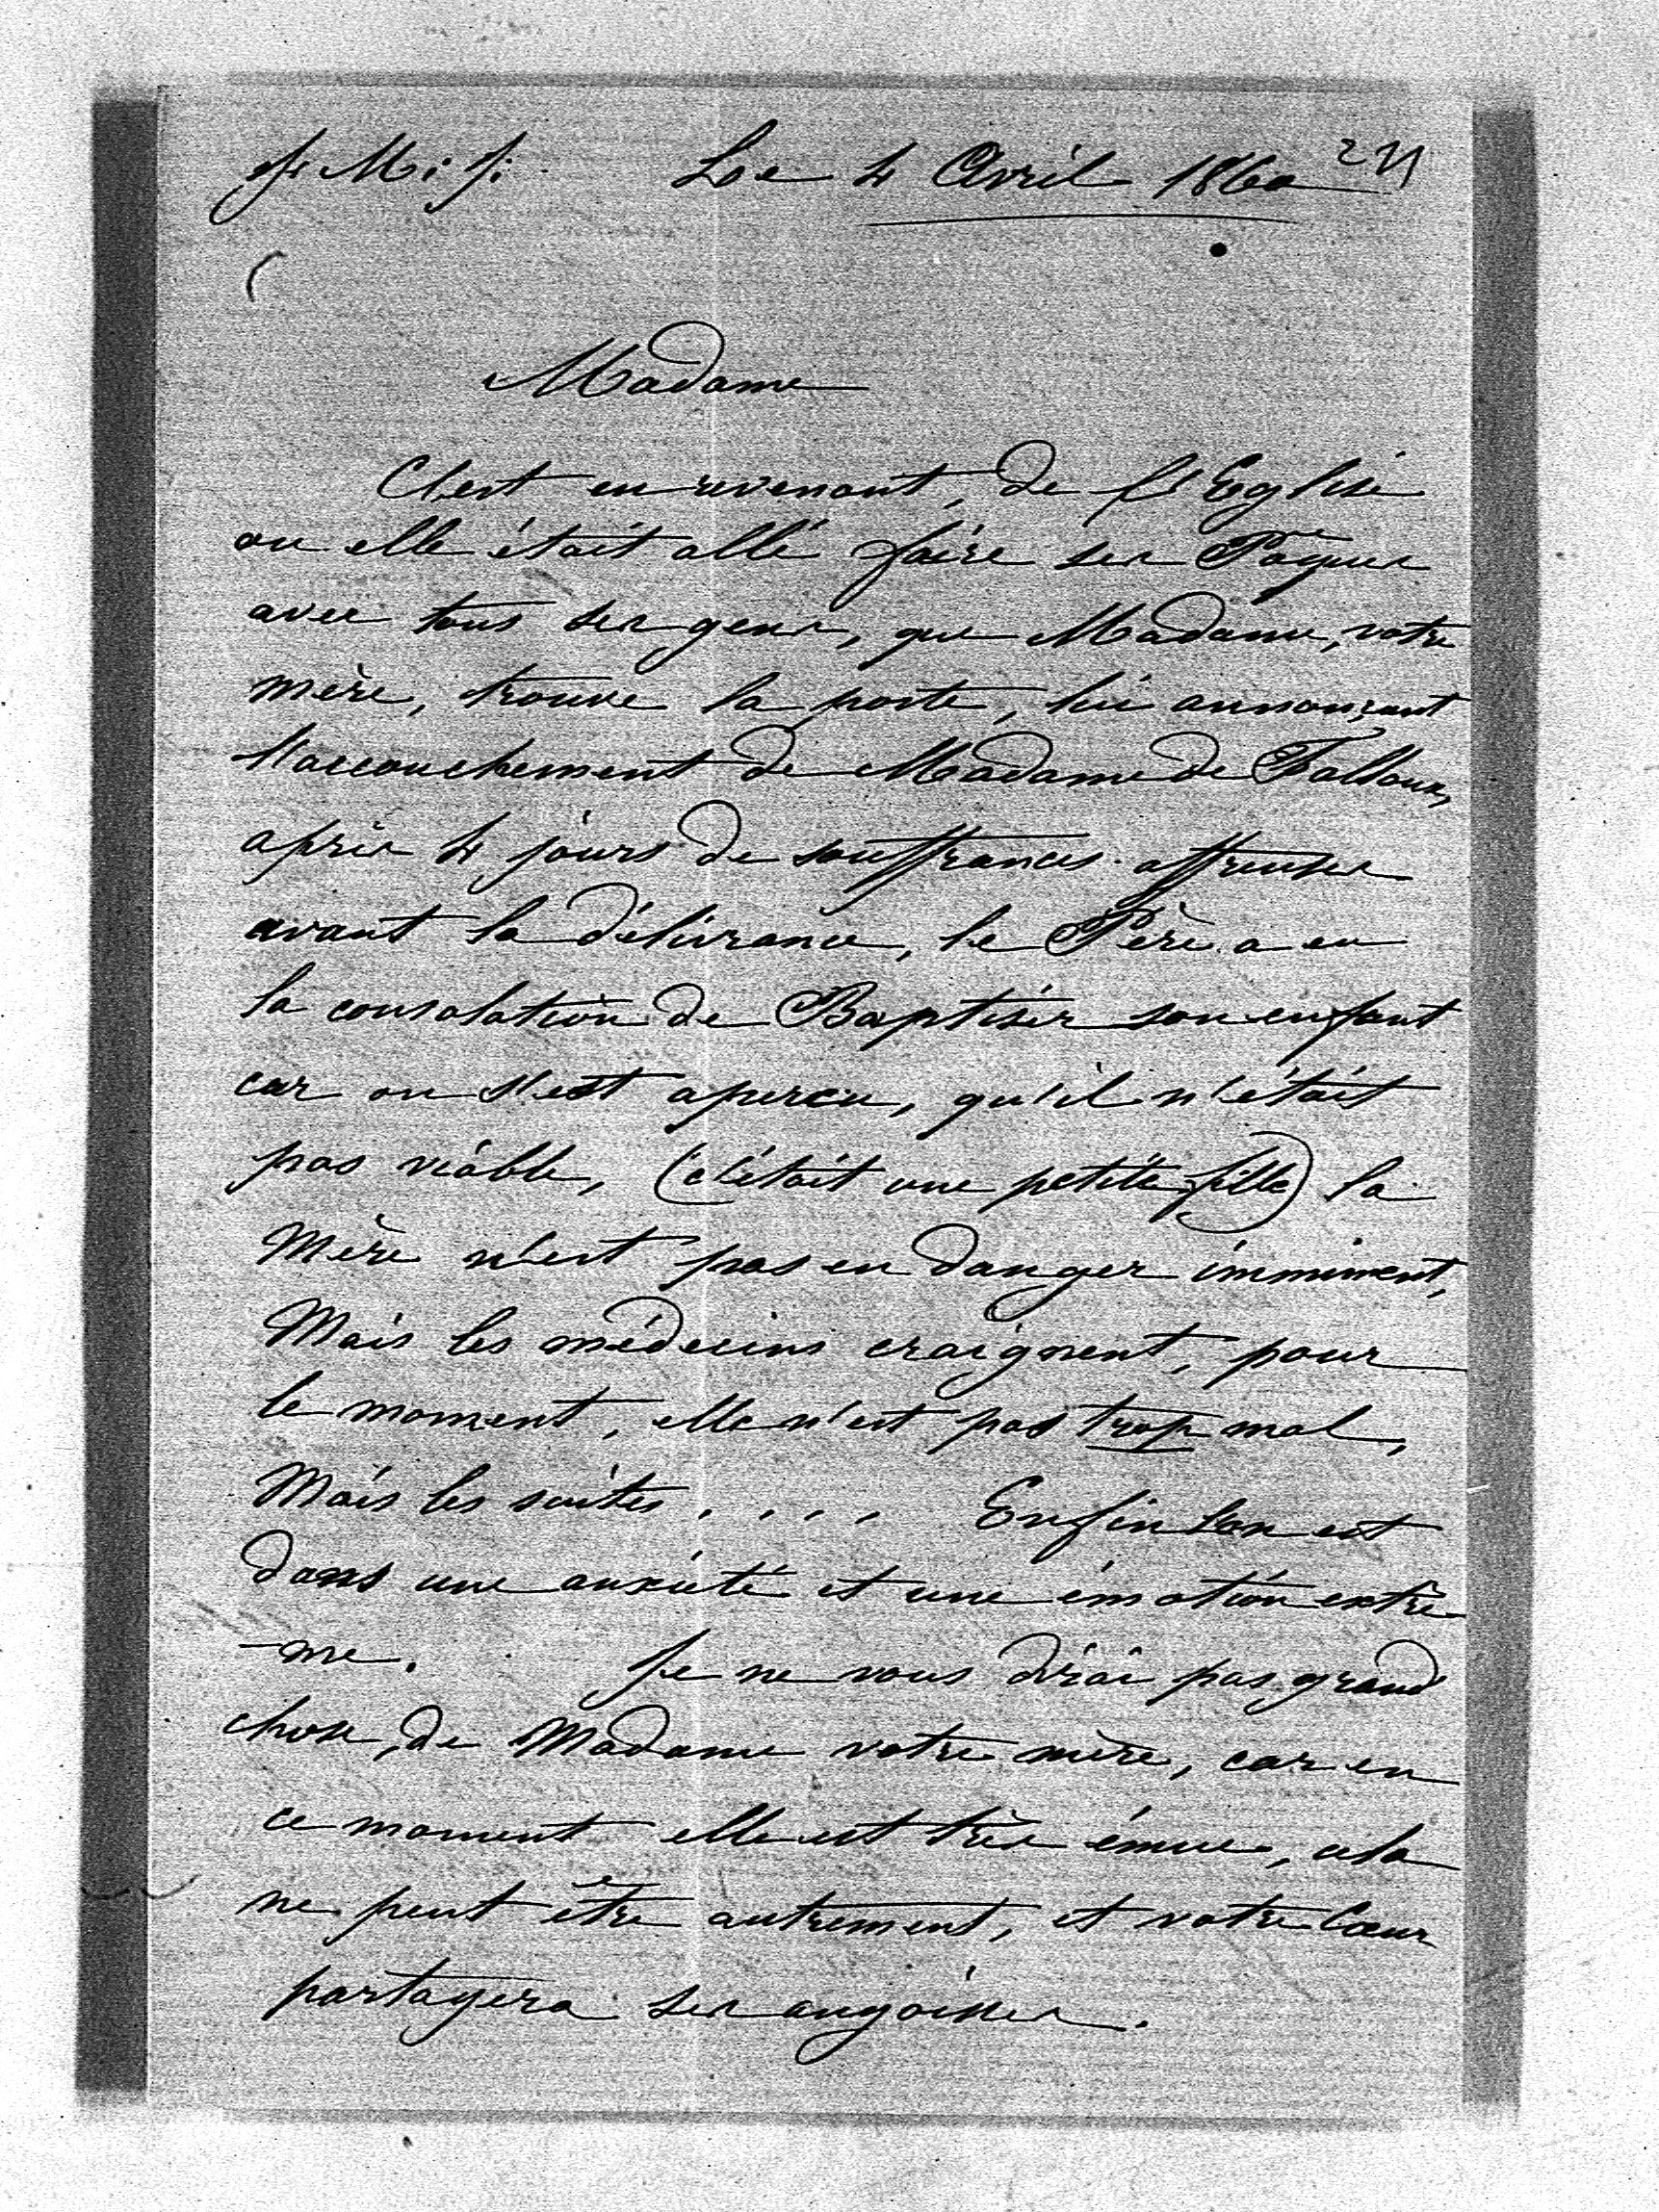 J. M. J. Le 4 Avril 1860
Madame
C'est en revenant, de l'Eglise
ou elle était allé faire ses Pâques
avec tous ses gens, que Madame, votre
mère, trouve la poste, lui annonçant
l'accouchement de Madame de Falloux,
après 4 jours de souffrances affreuses
avant la délivrance, le Père a eu
la consolation de Baptiser son enfant
car on s'est apercu, qu'il n'était
pas viable, (c'était une petite fille) la
Mère n'est pas en danger imminent,
Mais les médecins craignent, pour
le moment, elle n'est pas trop mal,
Mais les suites . . . . Enfin l'on est
dans une anxiété et une émotion extrê-
-me. Je ne vous dirai pas grand
chose, de Madame votre mère, car en
ce moment elle est très émue, cela
ne peut être autrement, et votre Cœur
partagera ses angoisses.